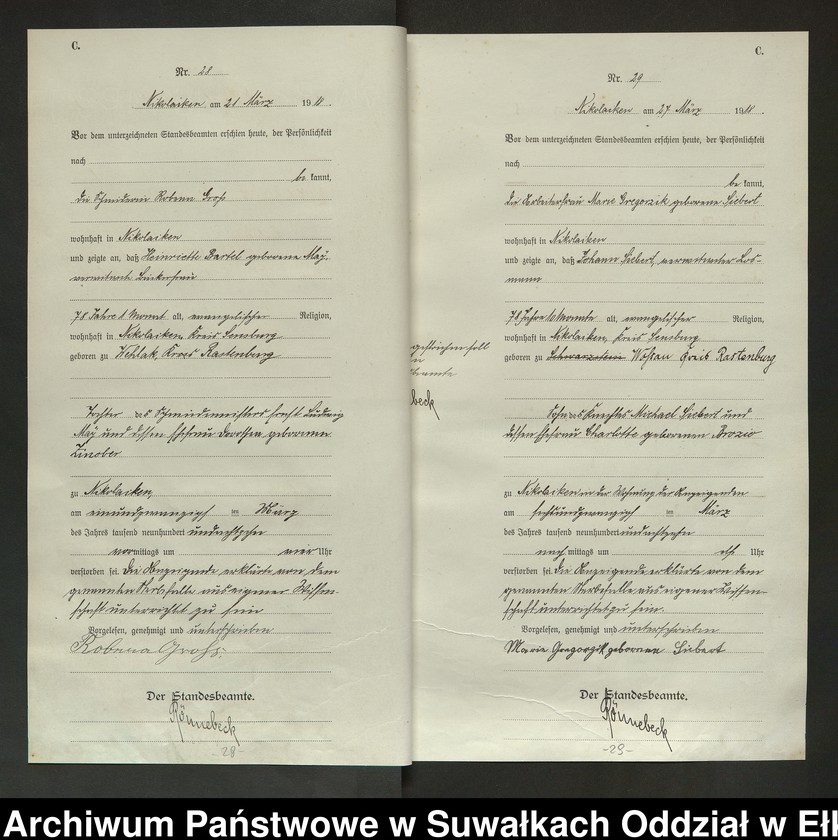 C.
Nr. 28
Nikolaiken am 21 März 19
Vor dem unterzeichneten Standesbeamten erschien heute, der Persönlichkeit
nach
be kannt,
die Schneiderin Robena Groß
wohnhaft in Nikolaiken
und zeigte an, daß Henriette Bartel geborene May,
verwitwete
78 Jahre 1 Monat alt, evangelischer Religion,
wohnhaft in Nikolaiken, Kreis Sensburg
geboren zu Wehlak, Kreis Rastenburg
Tochter des Schmiedemeisters Ludwig
May und dessen Ehefrau Dorothea geborenen
Zinober
zu Nikolaiken
am einundzwanzigsten März
des Jahres tausend neunhundert undachtzehn
vor mittags um vier Uhr
verstorben sei. Die Anzeigende erklärte von dem
genannten Sterbefalle aus eigener Wissen-
schaft unterrichtet zu sein
Vorgelesen, genehmigt und unterschrieben
Robena Groß.
Der Standesbeamte.
Rönnebeck
- 28 -
gestrichen soll
beck
C.
Nr. 29
Nikolaiken am 27 März 19
Vor dem unterzeichneten Standesbeamten erschien heute, der Persönlichkeit
nach
be kannt,
die Arbeiterfrau Marie Gregorzik geborene Siebert
wohnhaft in Nikolaiken
und zeigte an, daß Johann Siebert, verwitweter Los-
mann
78 Jahre Monate alt, evangelischer Religion,
wohnhaft in Nikolaiken, Kreis Sensburg
geboren zu Schwarzstein Woplau Kreis Rastenburg
Sohn des Knechtes Michael Siebert und
dessen Ehefrau Charlotte geborenen Brozio
zu Nikolaiken in der Wohnung der Anzeigenden
am sechsundzwanzigsten März
des Jahres tausend neunhundert undachtzehn
nach mittags um elf Uhr
verstorben sei. Die Anzeigende erklärte von dem
genannten Sterbefalle aus eigener Wissen-
schaft unterrichtet zu sein.
Vorgelesen, genehmigt und unterschrieben
Marie Gregorzik geborene Siebert
Der Standesbeamte.
Rönnebeck
- 29 -
Archiwum Państwowe w Suwałkach Oddział w Eł